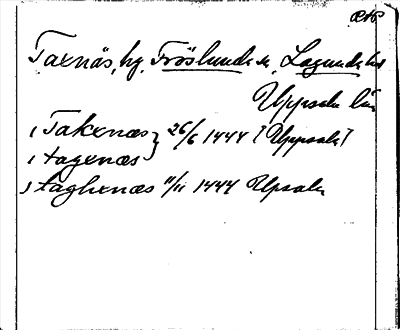 Taxnäs, hg. Fröslunda sn, Lagunda hd
Uppsala län
i Takenæs } 26/6 1444 [Uppsala]
i tagenæs
i taghenæs 11/11 1444 Upsala